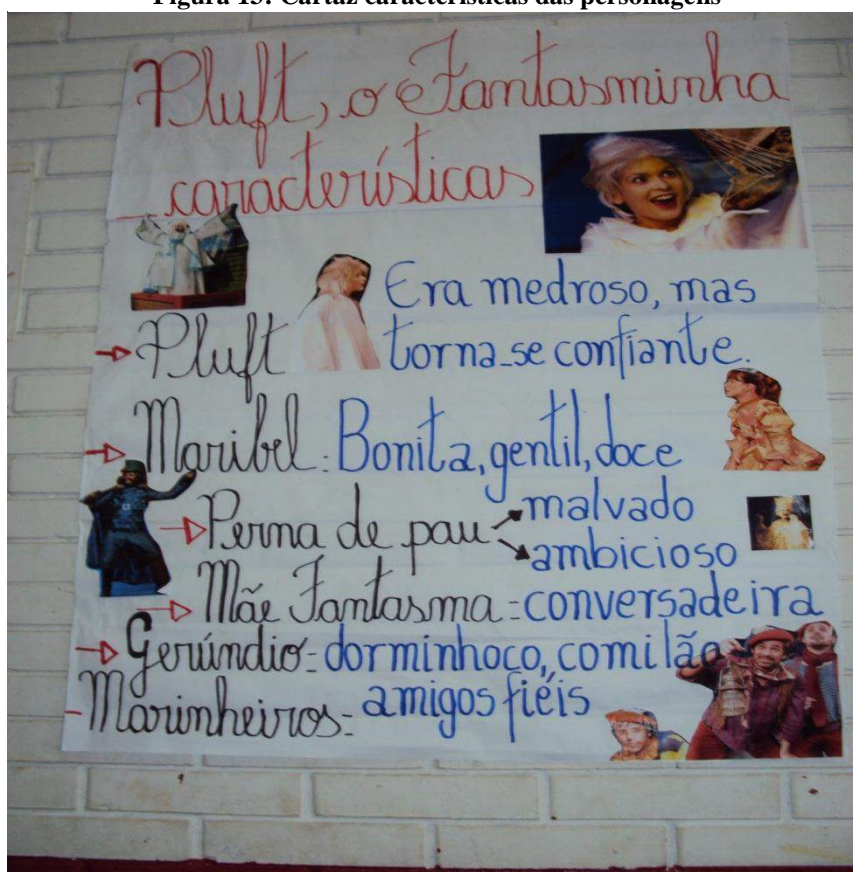 Figura 13: Cartaz características das personagens
Pluft, o Fantasminha
características
Era medroso, mas
Pluft torna-se confiante.
Maribel: Bonita, gentil, doce
Perna de pau malvado
ambicioso
Mãe Fantasma = conversadeira
Gerúndio = dorminhoco, comilão
Marinheiros = amigos fiéis